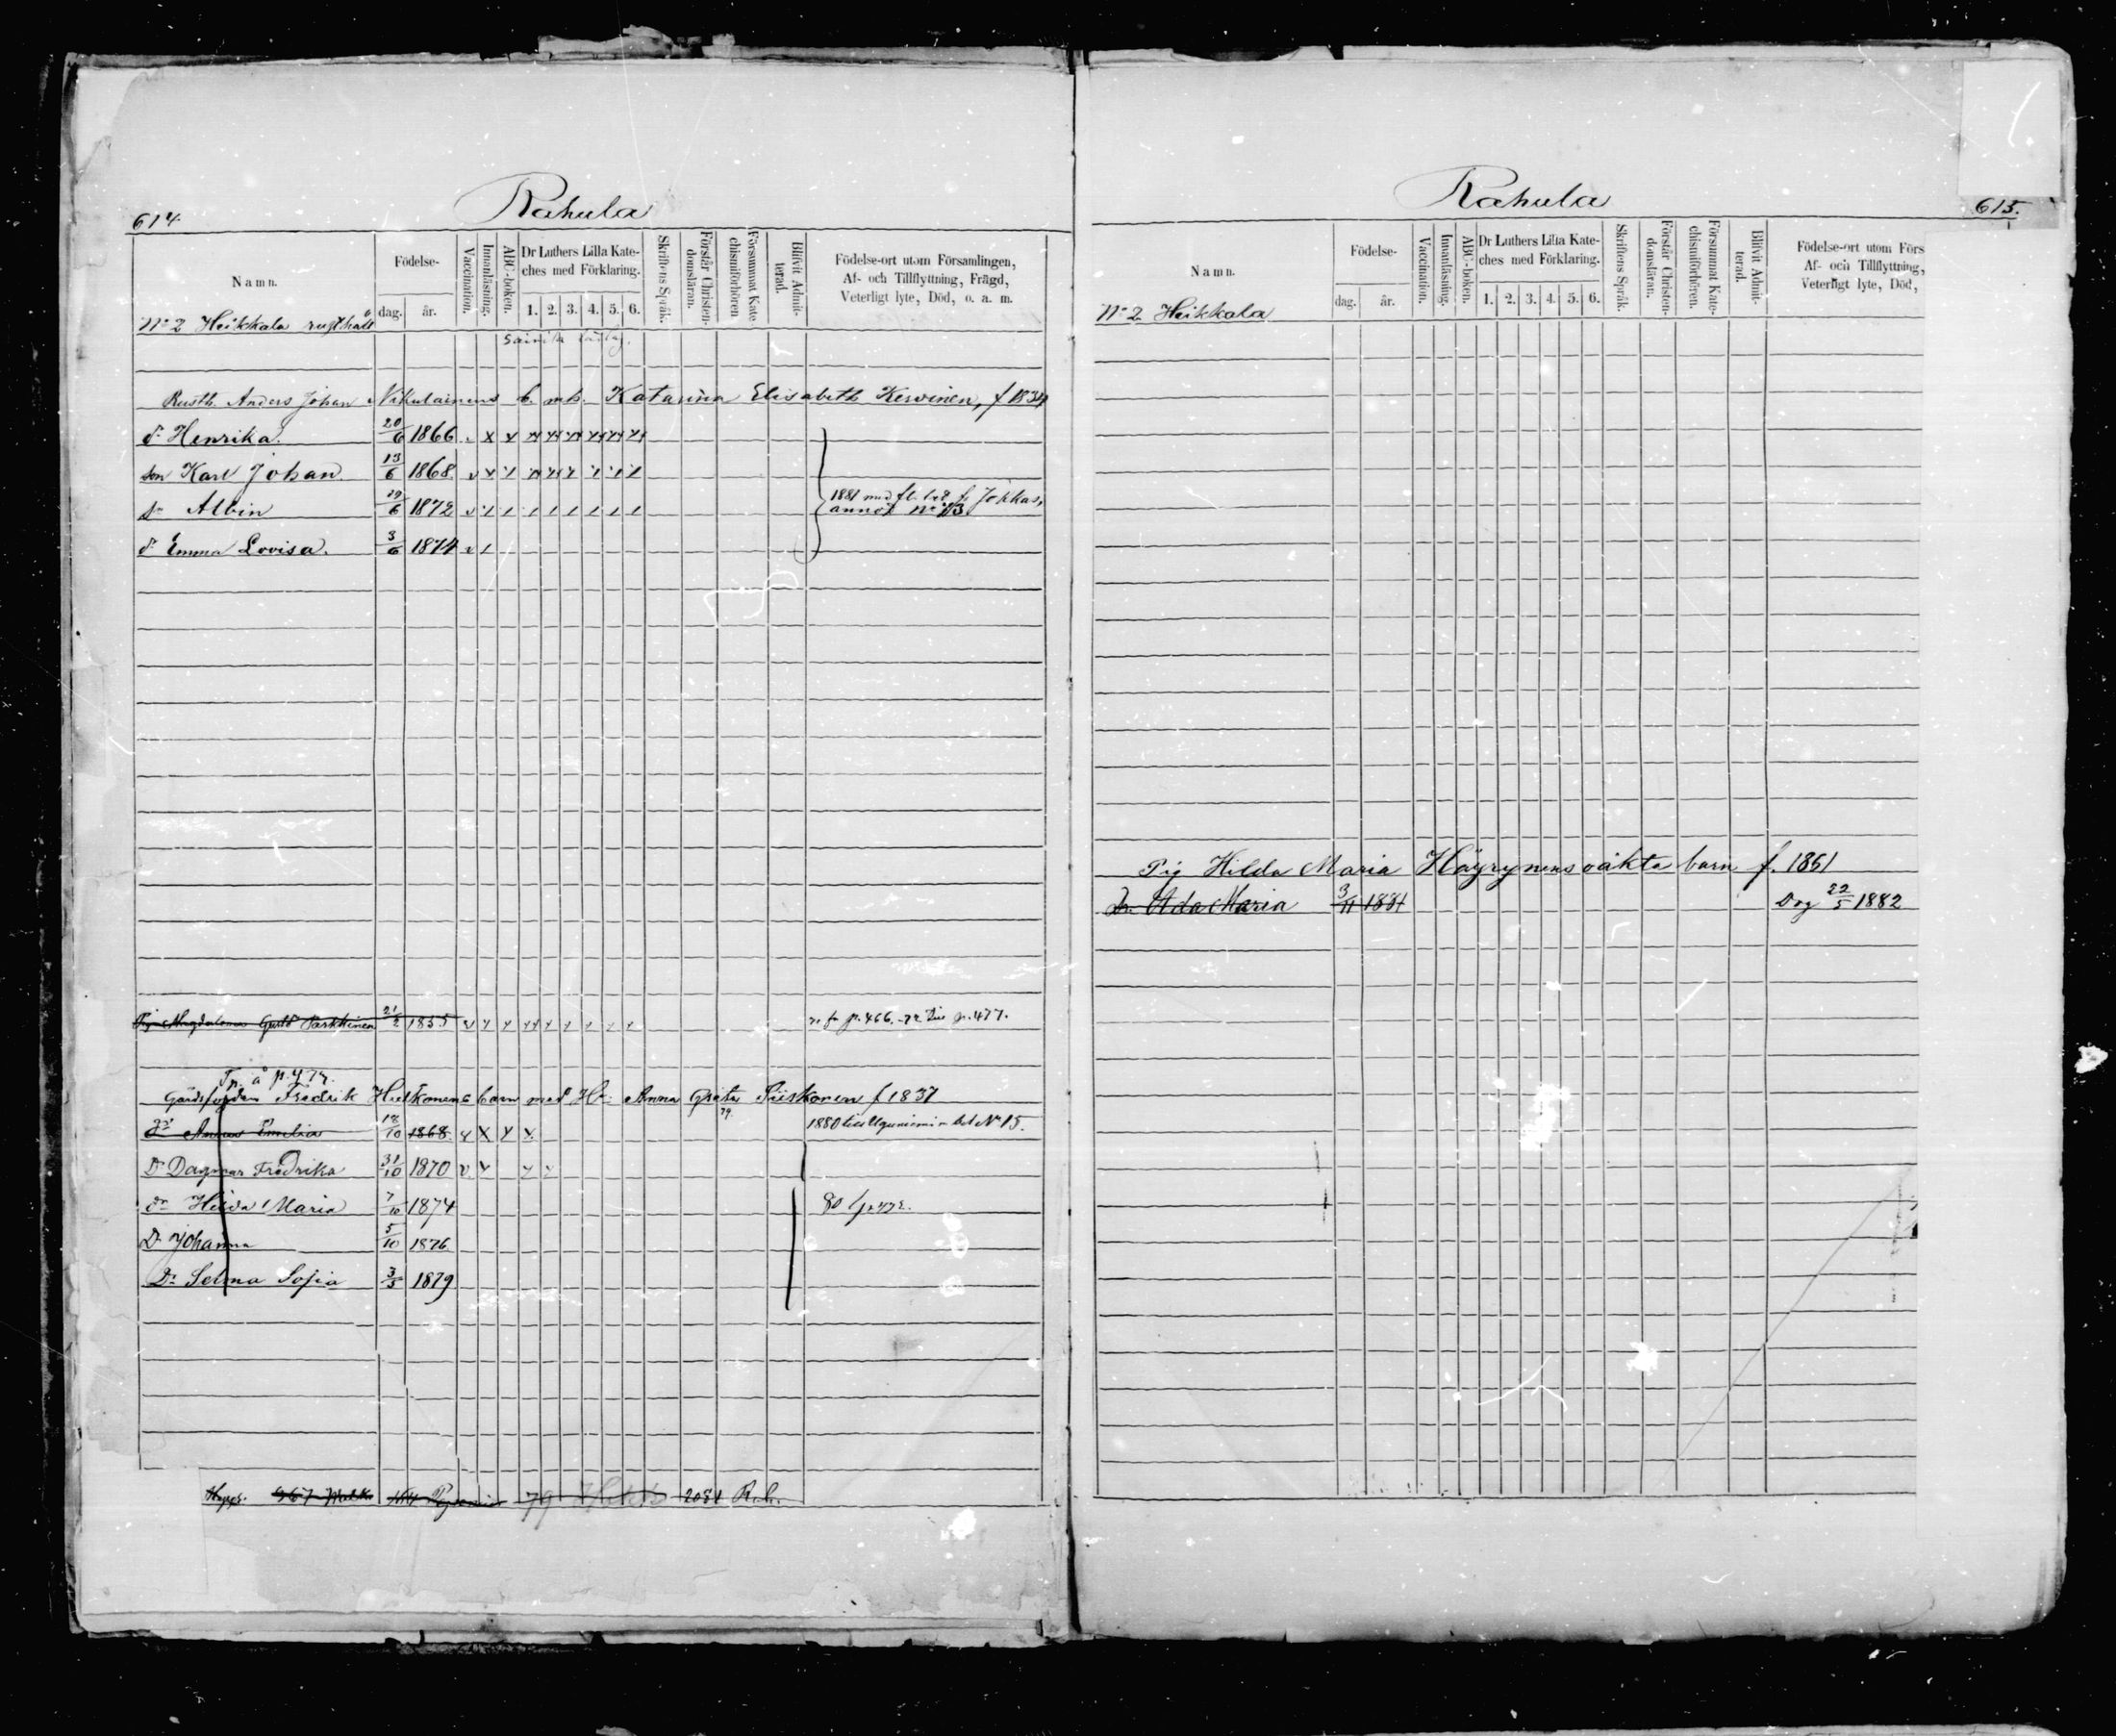 614
Rahula
Namn.
Födelse-
dag.
år.
Vaccination.
Innanläsning.
ABC-boken.
Dr Luthers Lilla Kate-
ches med Förklaring.
1. 2. 3. 4. 5. 6.
Skriftens Språk.
Förstår Christen-
domsläran.
Försummat Kate-
chismiförhören
Blifvit Admit-
terad.
Födelse-ort utom Församlingen,
Af- och Tillflyttning, Frägd,
Veterligt lyte, Död, o. a. m.
No 2 Heikkala rusthåll
Rusth. Anders Johan Nikulainens b. m. h. Katarina Elisabeth Kervinen, f 1834
dr Henrika. 20/6 1866
son Karl Johan 13/6 1868
sn Albin 29/6 1872
1881 med fl. bet. fr. Jokkas,
annot No 113
dr Emma Lovisa. 3/6 1874
Pig. Magdalena Gustd Parkkinen 21/2 1855 p. 466. p. 477.
Tp. å p.
Gårdsfogden Fredrik Hulkonens barn med H: Anna Greta Siiskonen f 1837
dr Anna Emilia 12/10 1868 1880 bet No 15.
Dr Dagmar Fredrika 31/10 1870
dr Hilda Maria 7/10 1874 80
Dr Johanna 5/10 1876
Dr Selma Sofia 3/5 1879
79 2081
Rahula
615.
Namn.
Födelse-
dag.
år.
Vaccination.
Innanläsning.
ABC-boken.
Dr Luthers Lilla Kate-
ches med Förklaring.
1. 2. 3. 4. 5. 6.
Skriftens Språk.
Förstår Christen-
domsläran.
Försummat Kate-
chismiförhören.
Blifvit Admit-
terad.
Födelse-ort utom Förs
Af- och Tillflyttning,
Veterligt lyte, Död,
No 2 Heikkala
Pig Hilda Maria Häyrynens oäkta barn f. 1861
Dr. Ada Maria 3/11 1881 Dog 22/5 1882